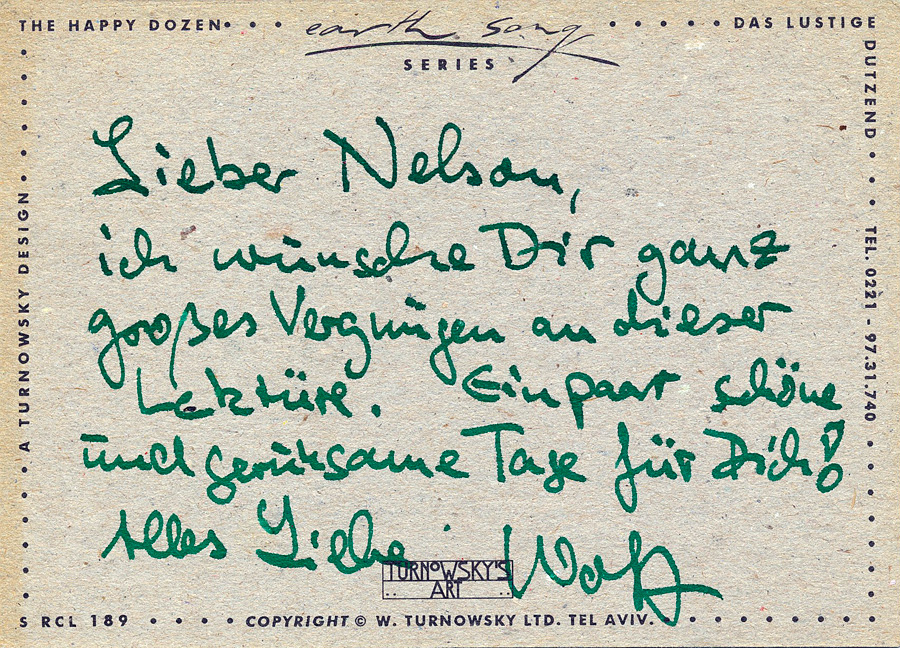 THE HAPPY DOZEN
earth song
SERIES
DAS LUSTIGE
DUTZEND
TEL. 0221 - 97.31.740
A TURNOWSKY DESIGN
Lieber Nelson,
ich wünsche Dir ganz
großes Vergnügen an dieser
Lektüre. Ein paar schöne
und geruhsame Tage für Dich!
Alles Liebe
TURNOWSKY'S
ART
S RCL 189
COPYRIGHT © W. TURNOWSKY LTD. TEL AVIV.